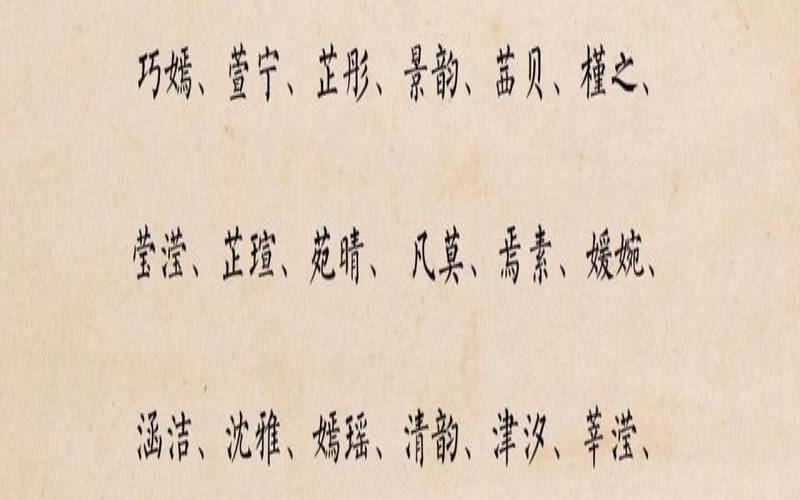 巧嫣、萱宁、芷彤、景韵、茜贝、槿之、
莹滢、芷瑄、苑晴、凡莫、焉素、媛婉、
涵洁、沈雅、嫣瑶、清韵、津汐、莘滢、